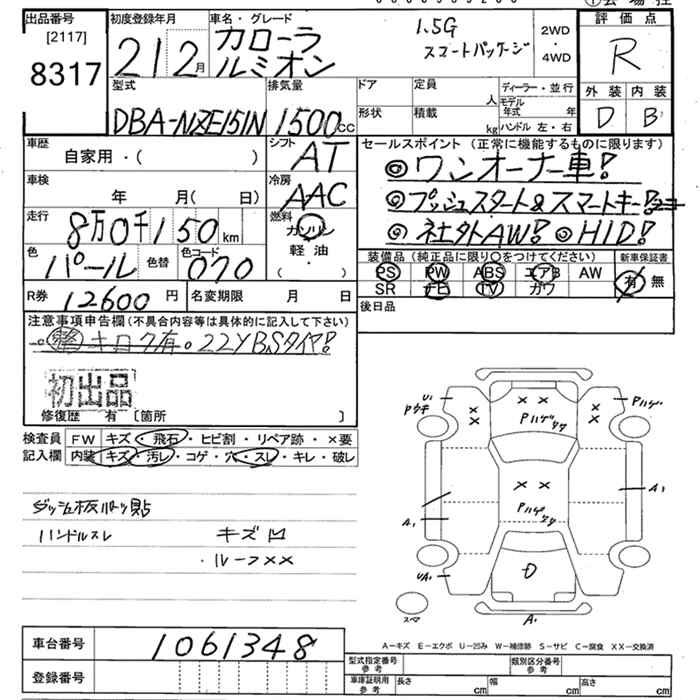 出品番号
[2117]
8317
初度登録年月
21 2月
車名・グレード
カローラ
ルミオン
1.5G
スマートパッケージ
2WD
・
4WD
評価点
R
外装 内装
D B
型式
DBA-NZE151N
排気量
1500cc
ドア
定員
人
形状
積載
kg
ディーラー・並行
モデル年式 年
ハンドル 左・右
車歴
自家用・( )
シフト
AT
車検
年 月( 日)
冷房
AAC
走行
8万0千150km
燃料
ガソリン
軽・油
( )
色
パール
色替
色コード
070
R券 12600円
名変期限 月 日
セールスポイント(正常に機能するものに限ります)
◎ワンオーナー車!
◎プッシュスタート&スマートキー!
◎社外AW! ◎HID!
装備品(純正品に限り○をつけてください)
PS PW ABS エアB AW
SR ナビ TV ガワ
新車保証書
有 無
後日品
注意事項申告欄(不具合内容等は具体的に記入して下さい)
キロク有。22YB,Sタイヤ!
初出品
修復歴 有 〔箇所 〕
検査員
記入欄
FW キズ・飛石・ヒビ割・リペア跡・×要
内装 キズ・汚レ・コゲ・穴・スレ・キレ・破レ
ダッシュ板取り貼
ハンドルスレ キズ凹
・ルーフ××
U1
Pウキ
Pハゲ
Pハゲ
××
Pハゲ
A1
A1
UA1
D
スペア
A1
A-キズ E-エクボ U-凹み W-補修跡 S-サビ C-腐食 XX-交換済
車台番号 1061348
登録番号
型式指定番号
参考
類別区分番号
参考
車庫証明用
参考
長さ cm
幅 cm
高さ cm